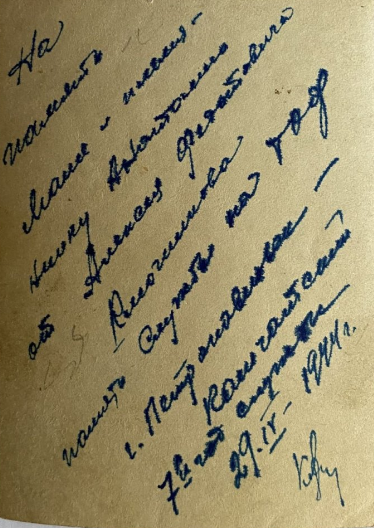 На
память
Маше и племян-
нику Анатолию
от Алексея Феоктовича
Ключникова
память службы на год
г. Петропавловск –
Камчатский
7й год службы
29.IV– 1944 г.